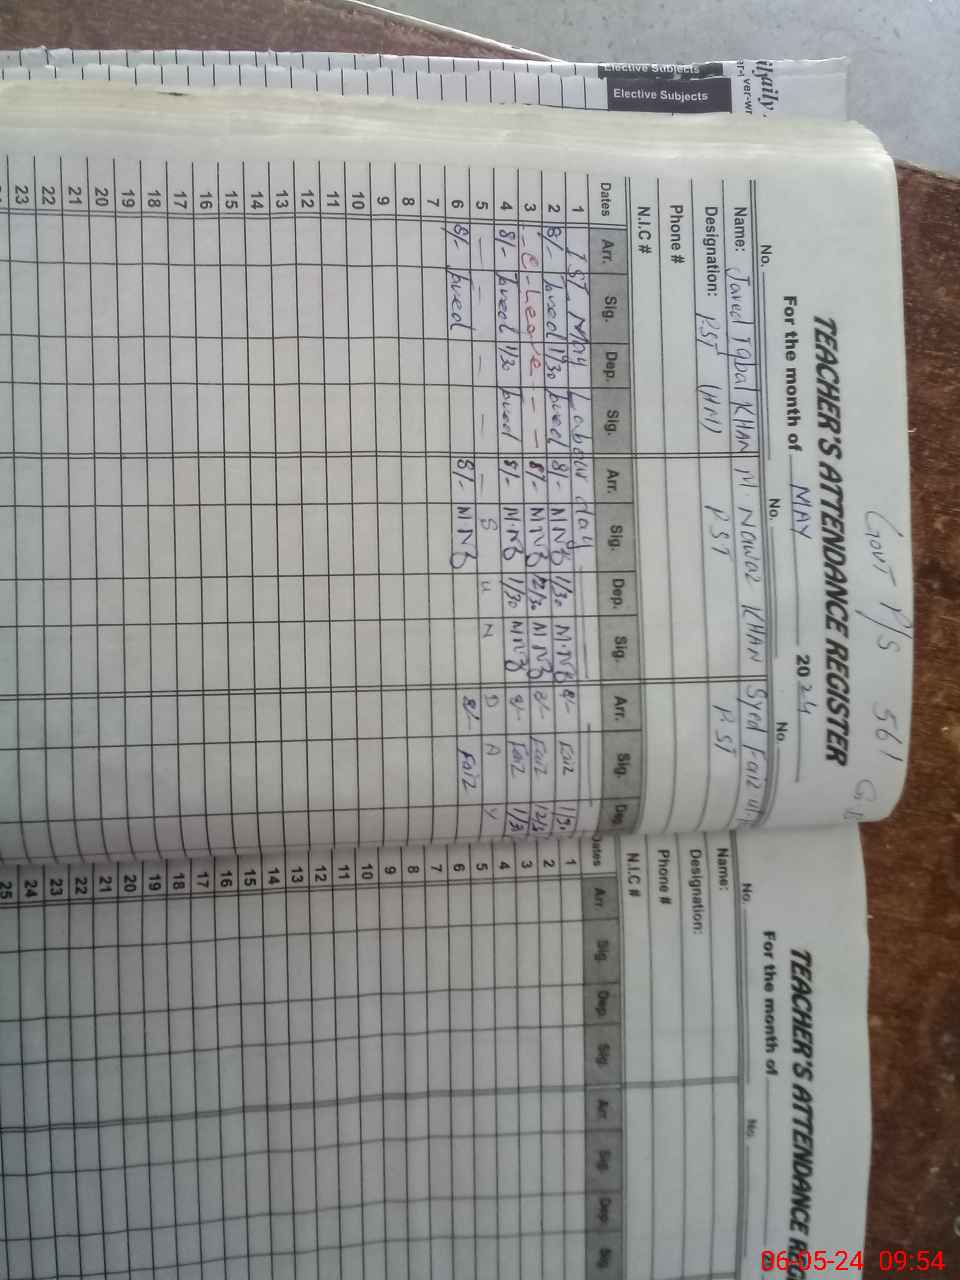 Elective Subjects
Elective Subjects
Govt P/S 561
TEACHER'S ATTENDANCE REGISTER
For the month of MAY 2024
No. No. No.
Name: Javed Iqbal KHAN M. Nawaz KHAN Syed Faiz ul-
Designation: PST (HM) PST PST
Phone #
N.I.C #
Dates Arr. Sig. Dep. Sig. Arr. Sig. Dep. Sig. Arr. Sig. Dep.
1 1st May Labour day
2 8/- Javed 1/30 Javed 8/- M.NB 1/30 M.NB 8/- Faiz 1/30
3 - C-Leave - - 8/- MNB 12/30 MNB 8/- Faiz 12/3
4 8/- Javed 1/30 Javed 8/- M.NB 1/30 MNB 8/- Faiz 1/30
5 - - - - - S U N D A Y
6 8/- Javed 8/- M.NB 8/- Faiz
7
8
9
10
11
12
13
14
15
16
17
18
19
20
21
22
23
TEACHER'S ATTENDANCE REG
For the month of
No. No.
Name:
Designation:
Phone #
N.I.C #
Dates Arr. Sig. Dep. Sig. Arr. Sig. Dep. Sig.
1
2
3
4
5
6
7
8
9
10
11
12
13
14
15
16
17
18
19
20
21
22
23
24
25
06-05-24 09:54